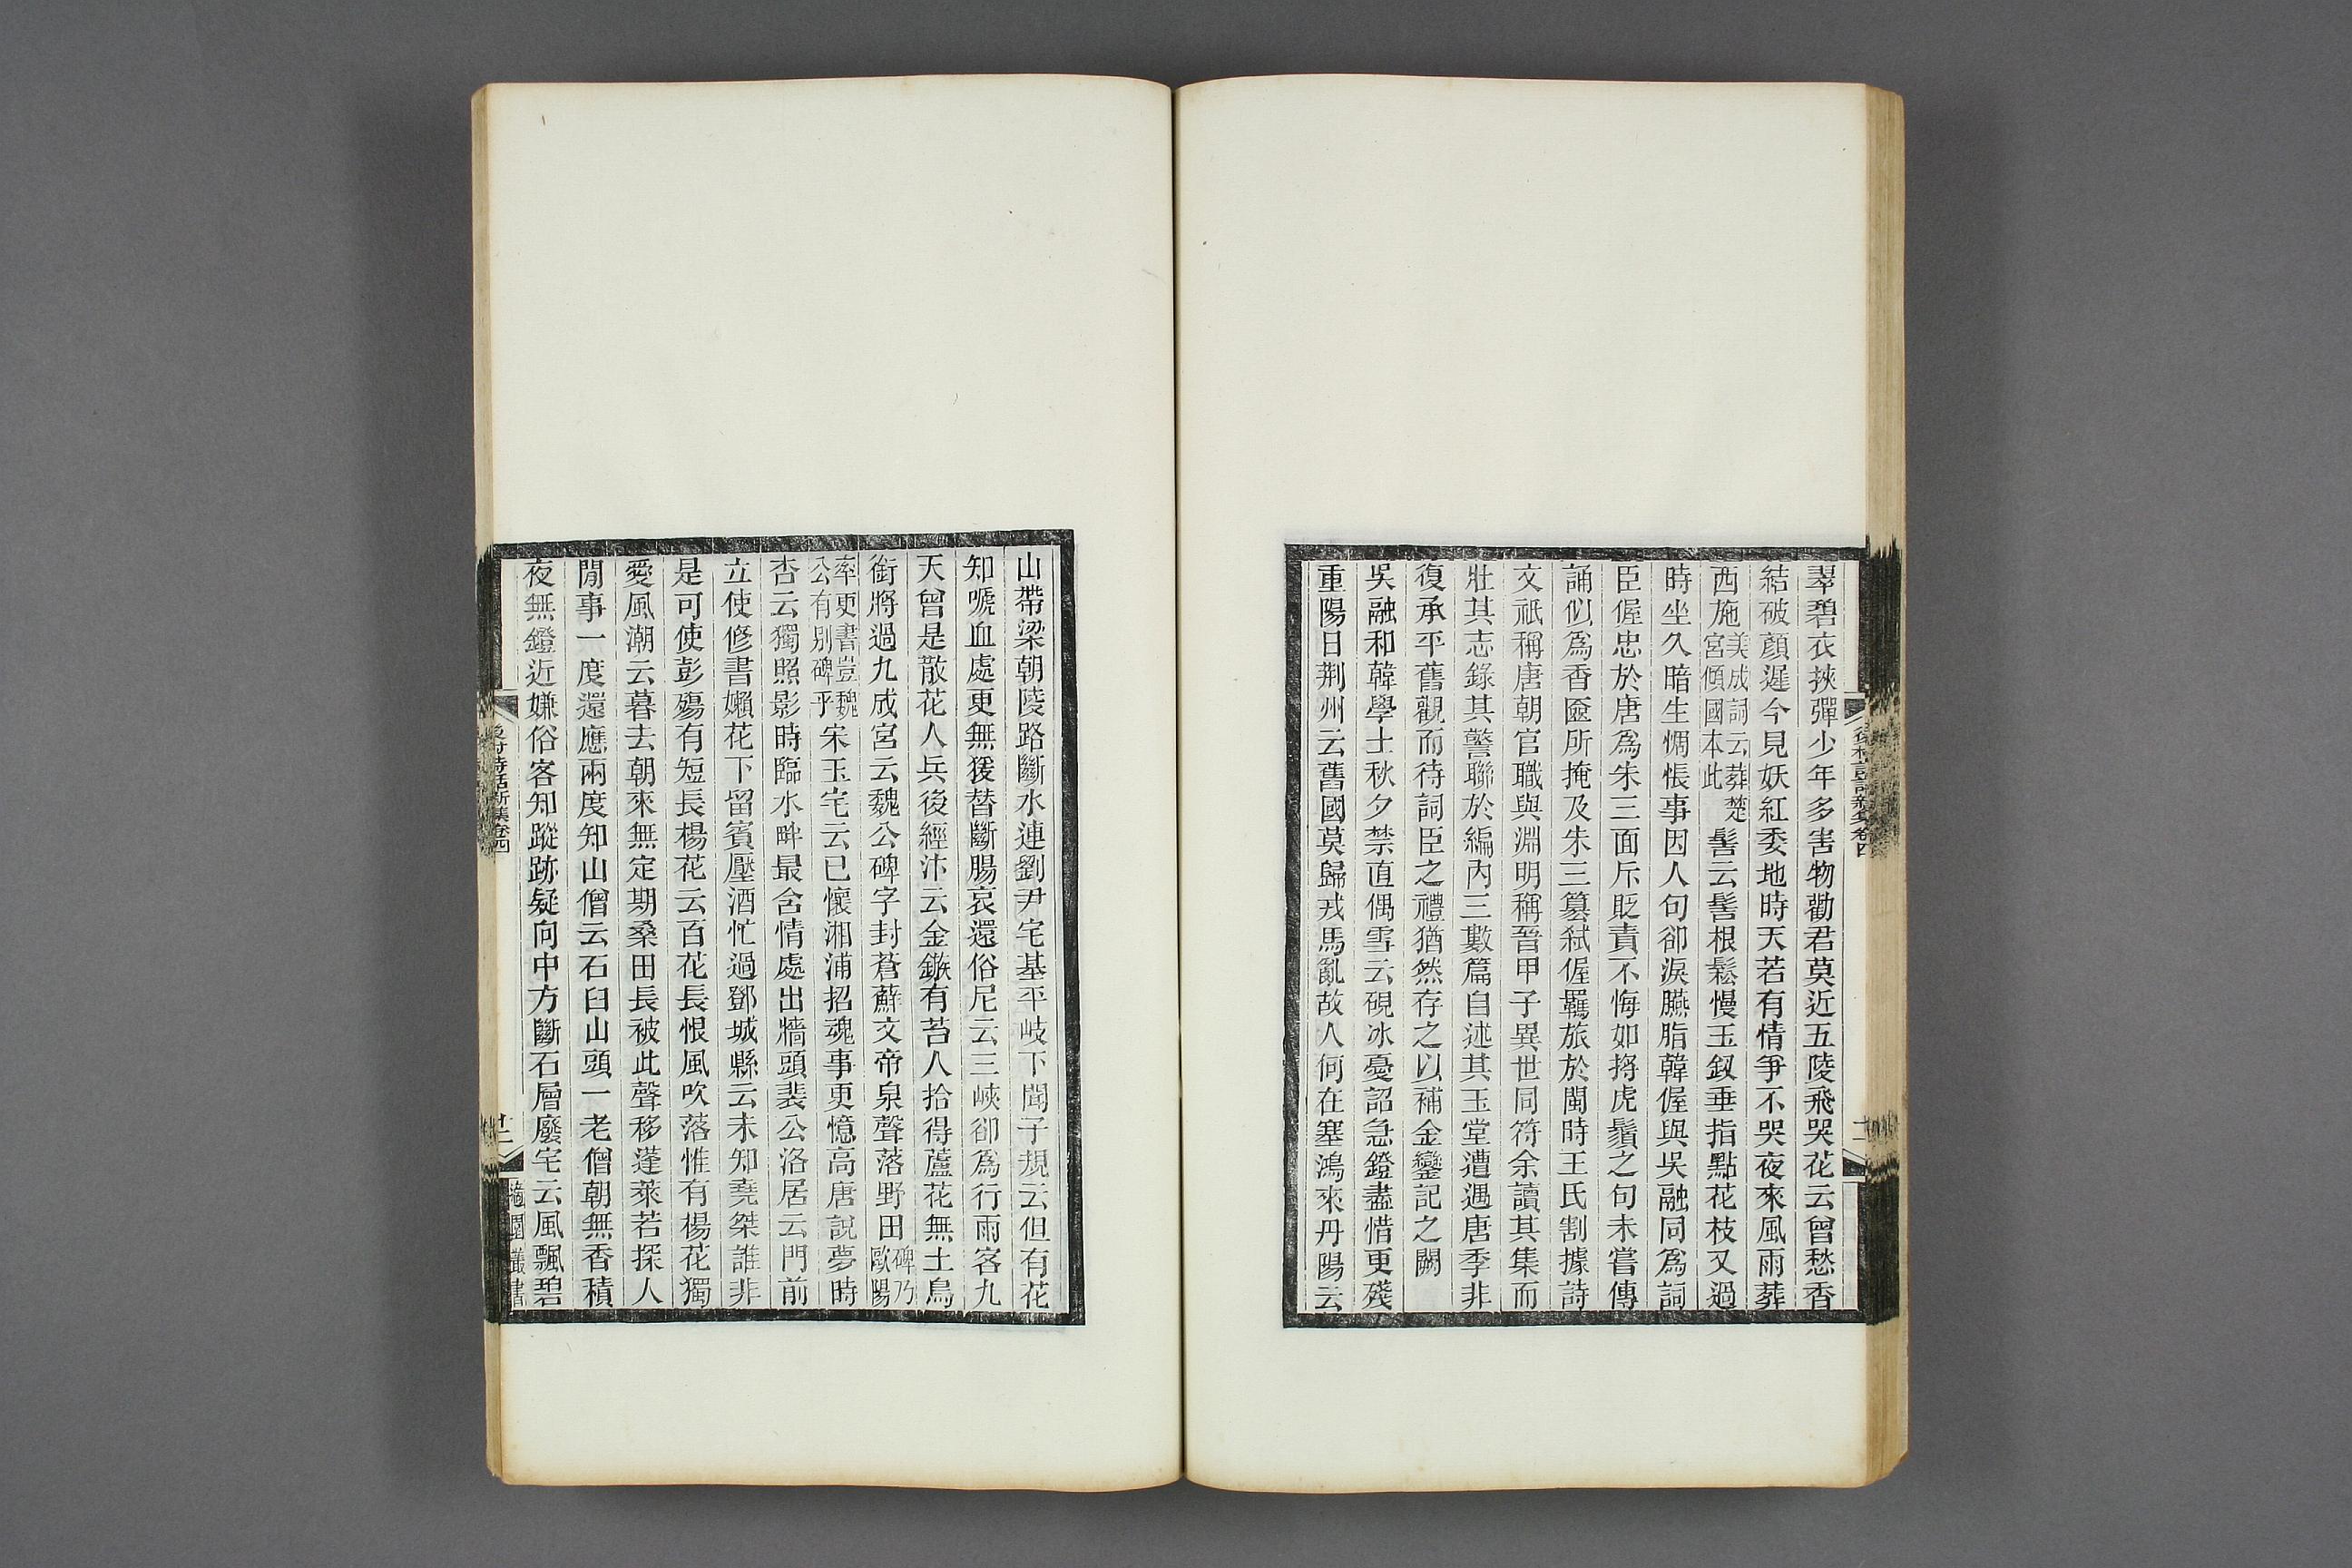 翠碧衣挾彈少年多害物勸君莫近五陵飛哭花云曾愁香
結破顏遲今見妖紅委地時天若有情爭不哭夜來風雨葬
西施美成詞云葬楚宮傾國本此髻云髻根鬆慢玉釵垂指點花枝又過
時坐久暗生惆悵事因人句卻淚臙脂韓偓與吳融同爲詞
臣偓忠於唐爲朱三面斥貶責不悔如捋虎鬚之句未嘗傳
誦似爲香奩所掩及朱三篡弑偓羈旅於閩時王氏割據詩
文祇稱唐朝官職與淵明稱晉甲子異世同符余讀其集而
壯其志錄其警聯於編內三數篇自述其玉堂遭遇唐季非
復承平舊觀而待詞臣之禮猶然存之以補金鑾記之闕
吳融和韓學士秋夕禁直偶雪云硯冰憂詔急鐙盡惜更殘
重陽日荆州云舊國莫歸戎馬亂故人何在塞鴻來丹陽云
後村詩話新集卷四
十二
山帶梁朝陵路斷水連劉尹宅基平岐下聞子規云但有花
知嗁血處更無猨替斷腸哀還俗尼云三峽卻爲行雨客九
天曾是散花人兵後經汴云金鏃有苔人拾得蘆花無土鳥
銜將過九成宮云魏公碑字封蒼蘚文帝泉聲落野田碑乃歐陽
率更書豈魏公有别碑乎宋玉宅云已懷湘浦招魂事更憶高唐說夢時
杏云獨照影時臨水畔最含情處出牆頭裴公洛居云門前
立使修書嬾花下留賓壓酒忙過鄧城縣云未知堯桀誰非
是可使彭殤有短長楊花云百花長恨風吹落惟有楊花獨
愛風潮云暮去朝來無定期桑田長被此聲移蓬萊若探人
閒事一度還應兩度知山僧云石臼山頭一老僧朝無香積
夜無鐙近嫌俗客知蹤跡疑向中方斷石層廢宅云風飄碧
後村詩話新集卷四
十二
適園叢書